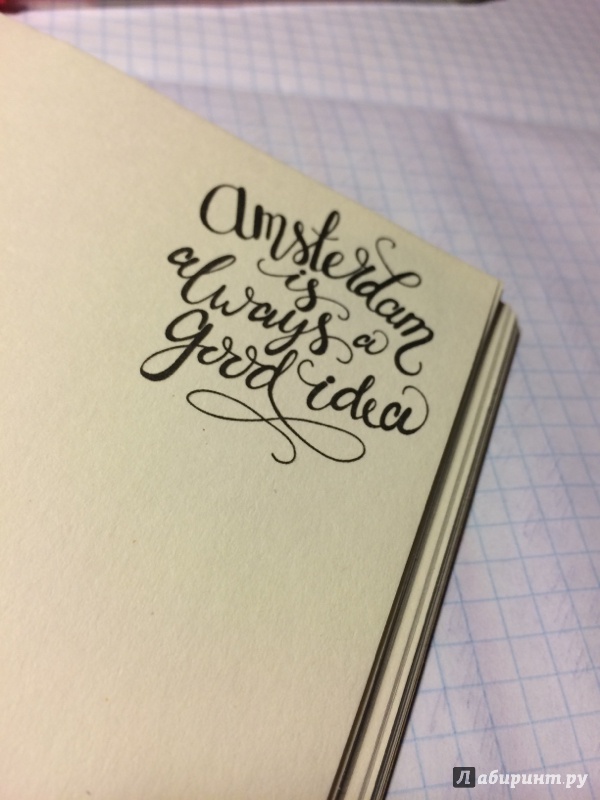 Amsterdam
is
always a
good idea
Лабиринт.ру